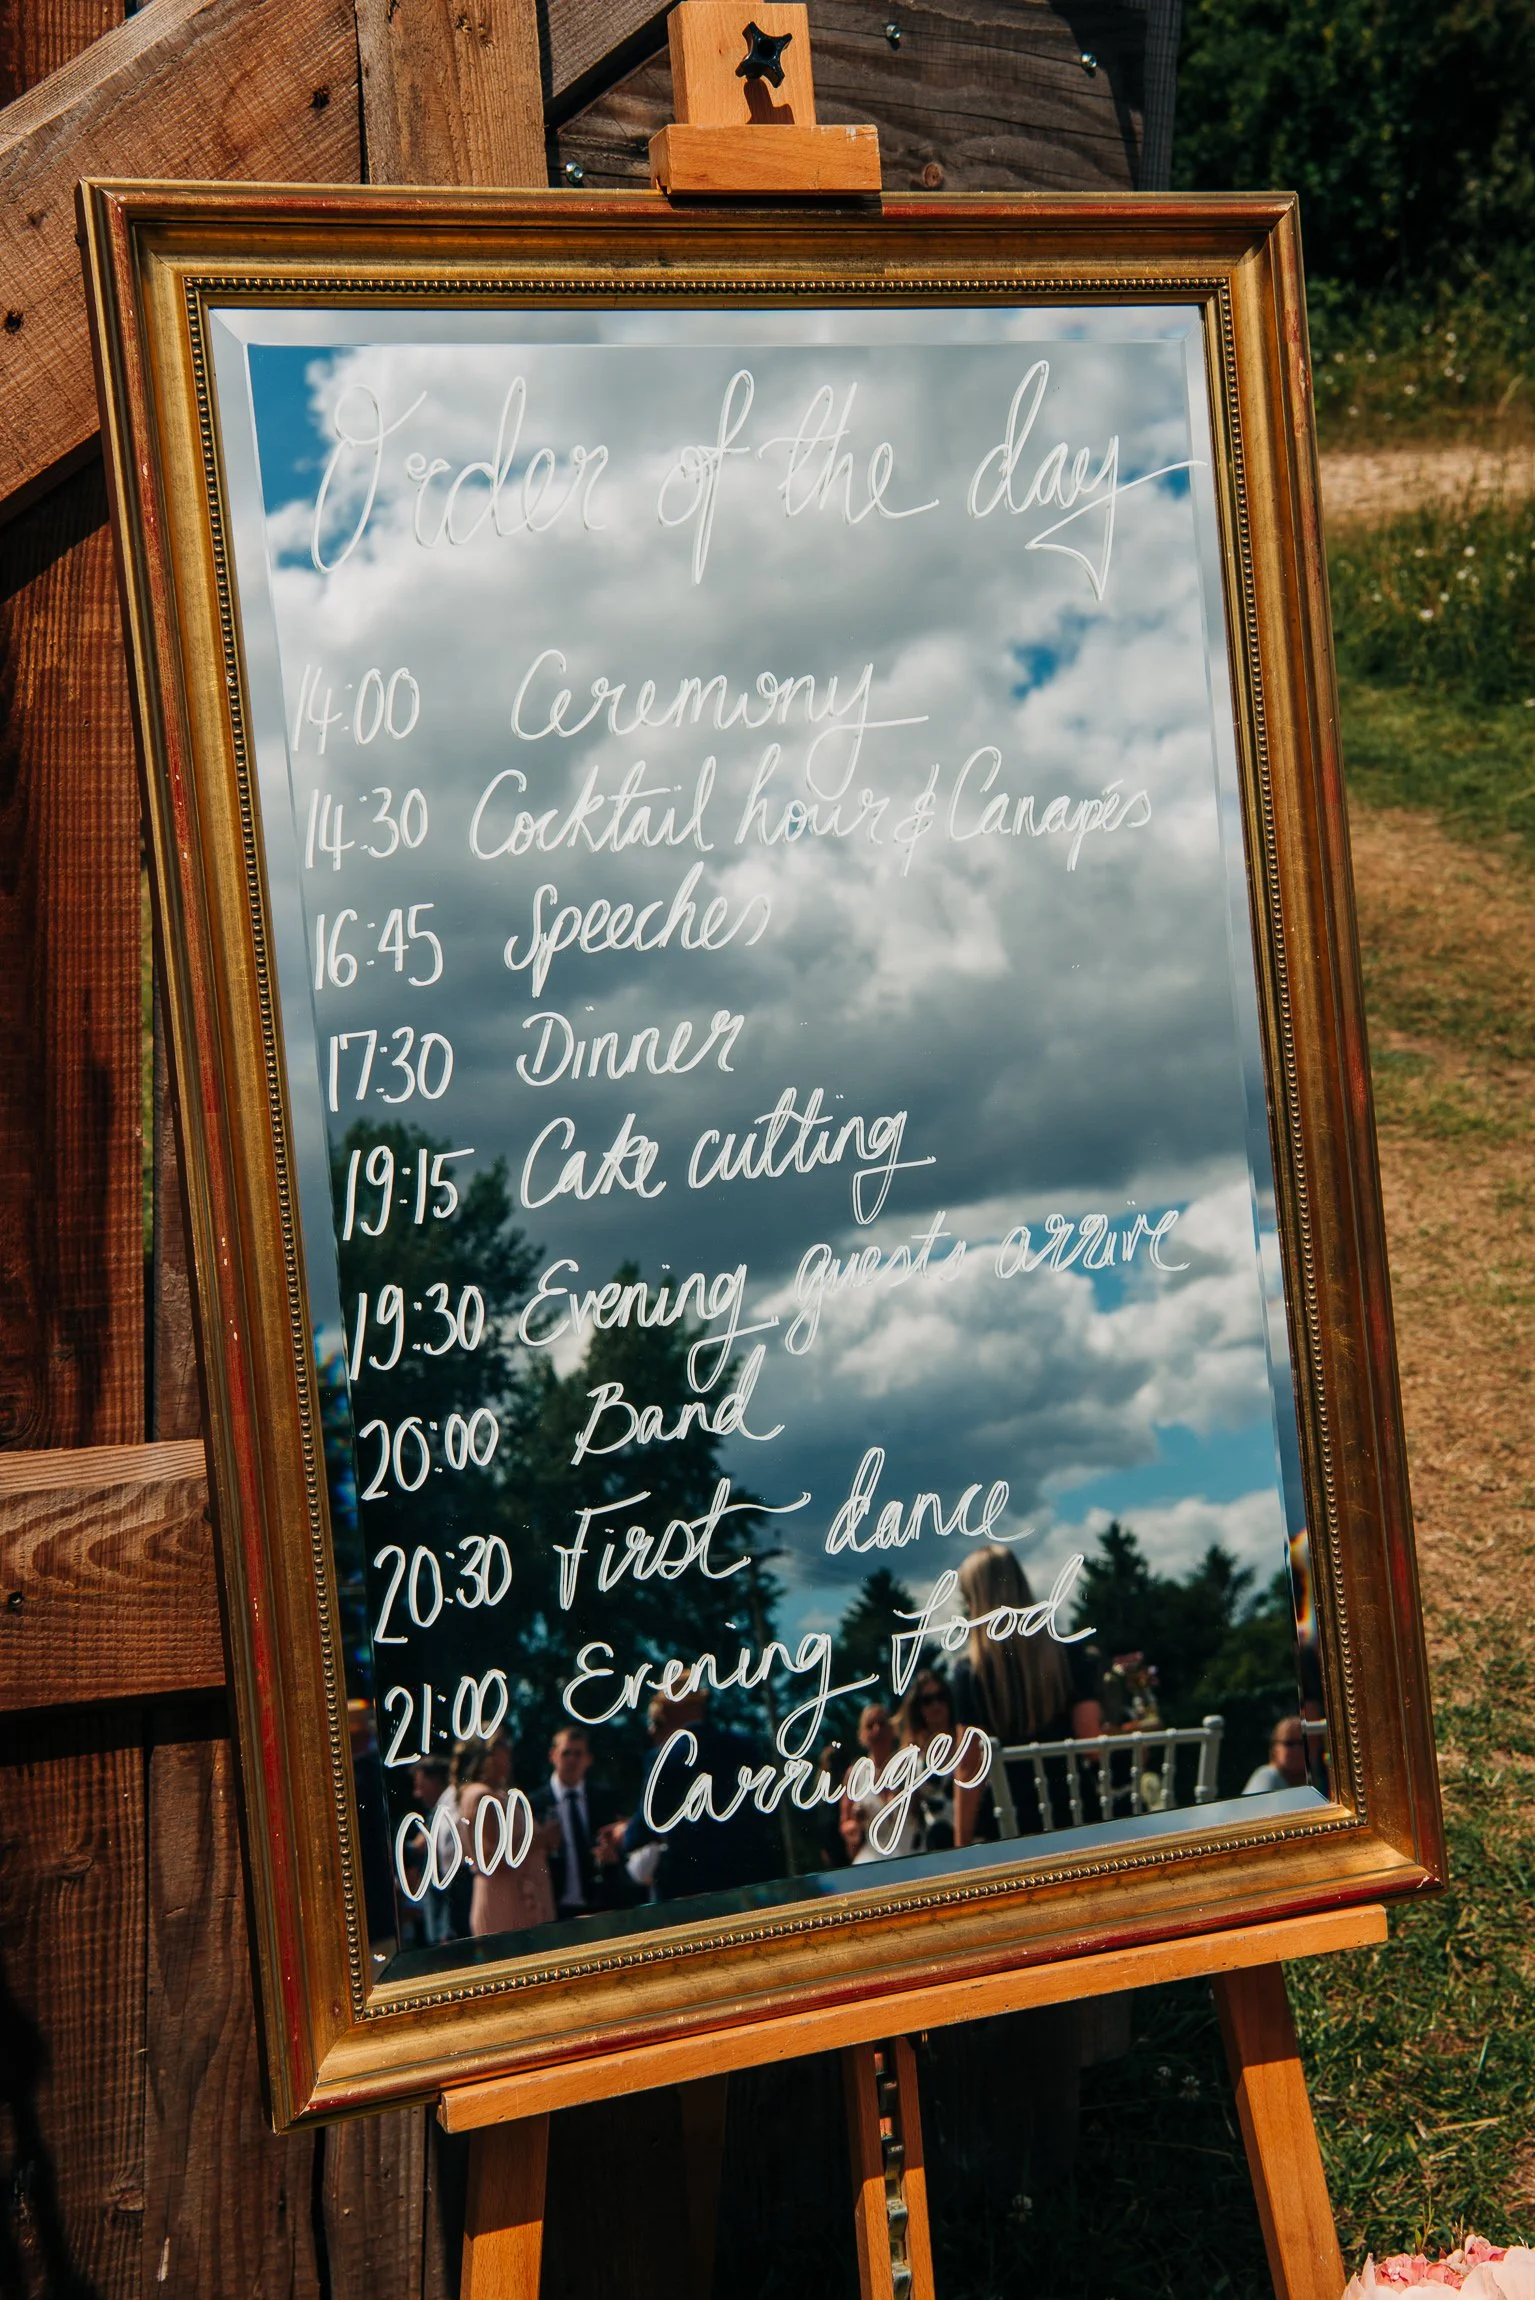 Order of the day
14:00 Ceremony
14:30 Cocktail hour & Canapés
16:45 Speeches
17:30 Dinner
19:15 Cake cutting
19:30 Evening guests arrive
20:00 Band
20:30 First dance
21:00 Evening food
00:00 Carriages